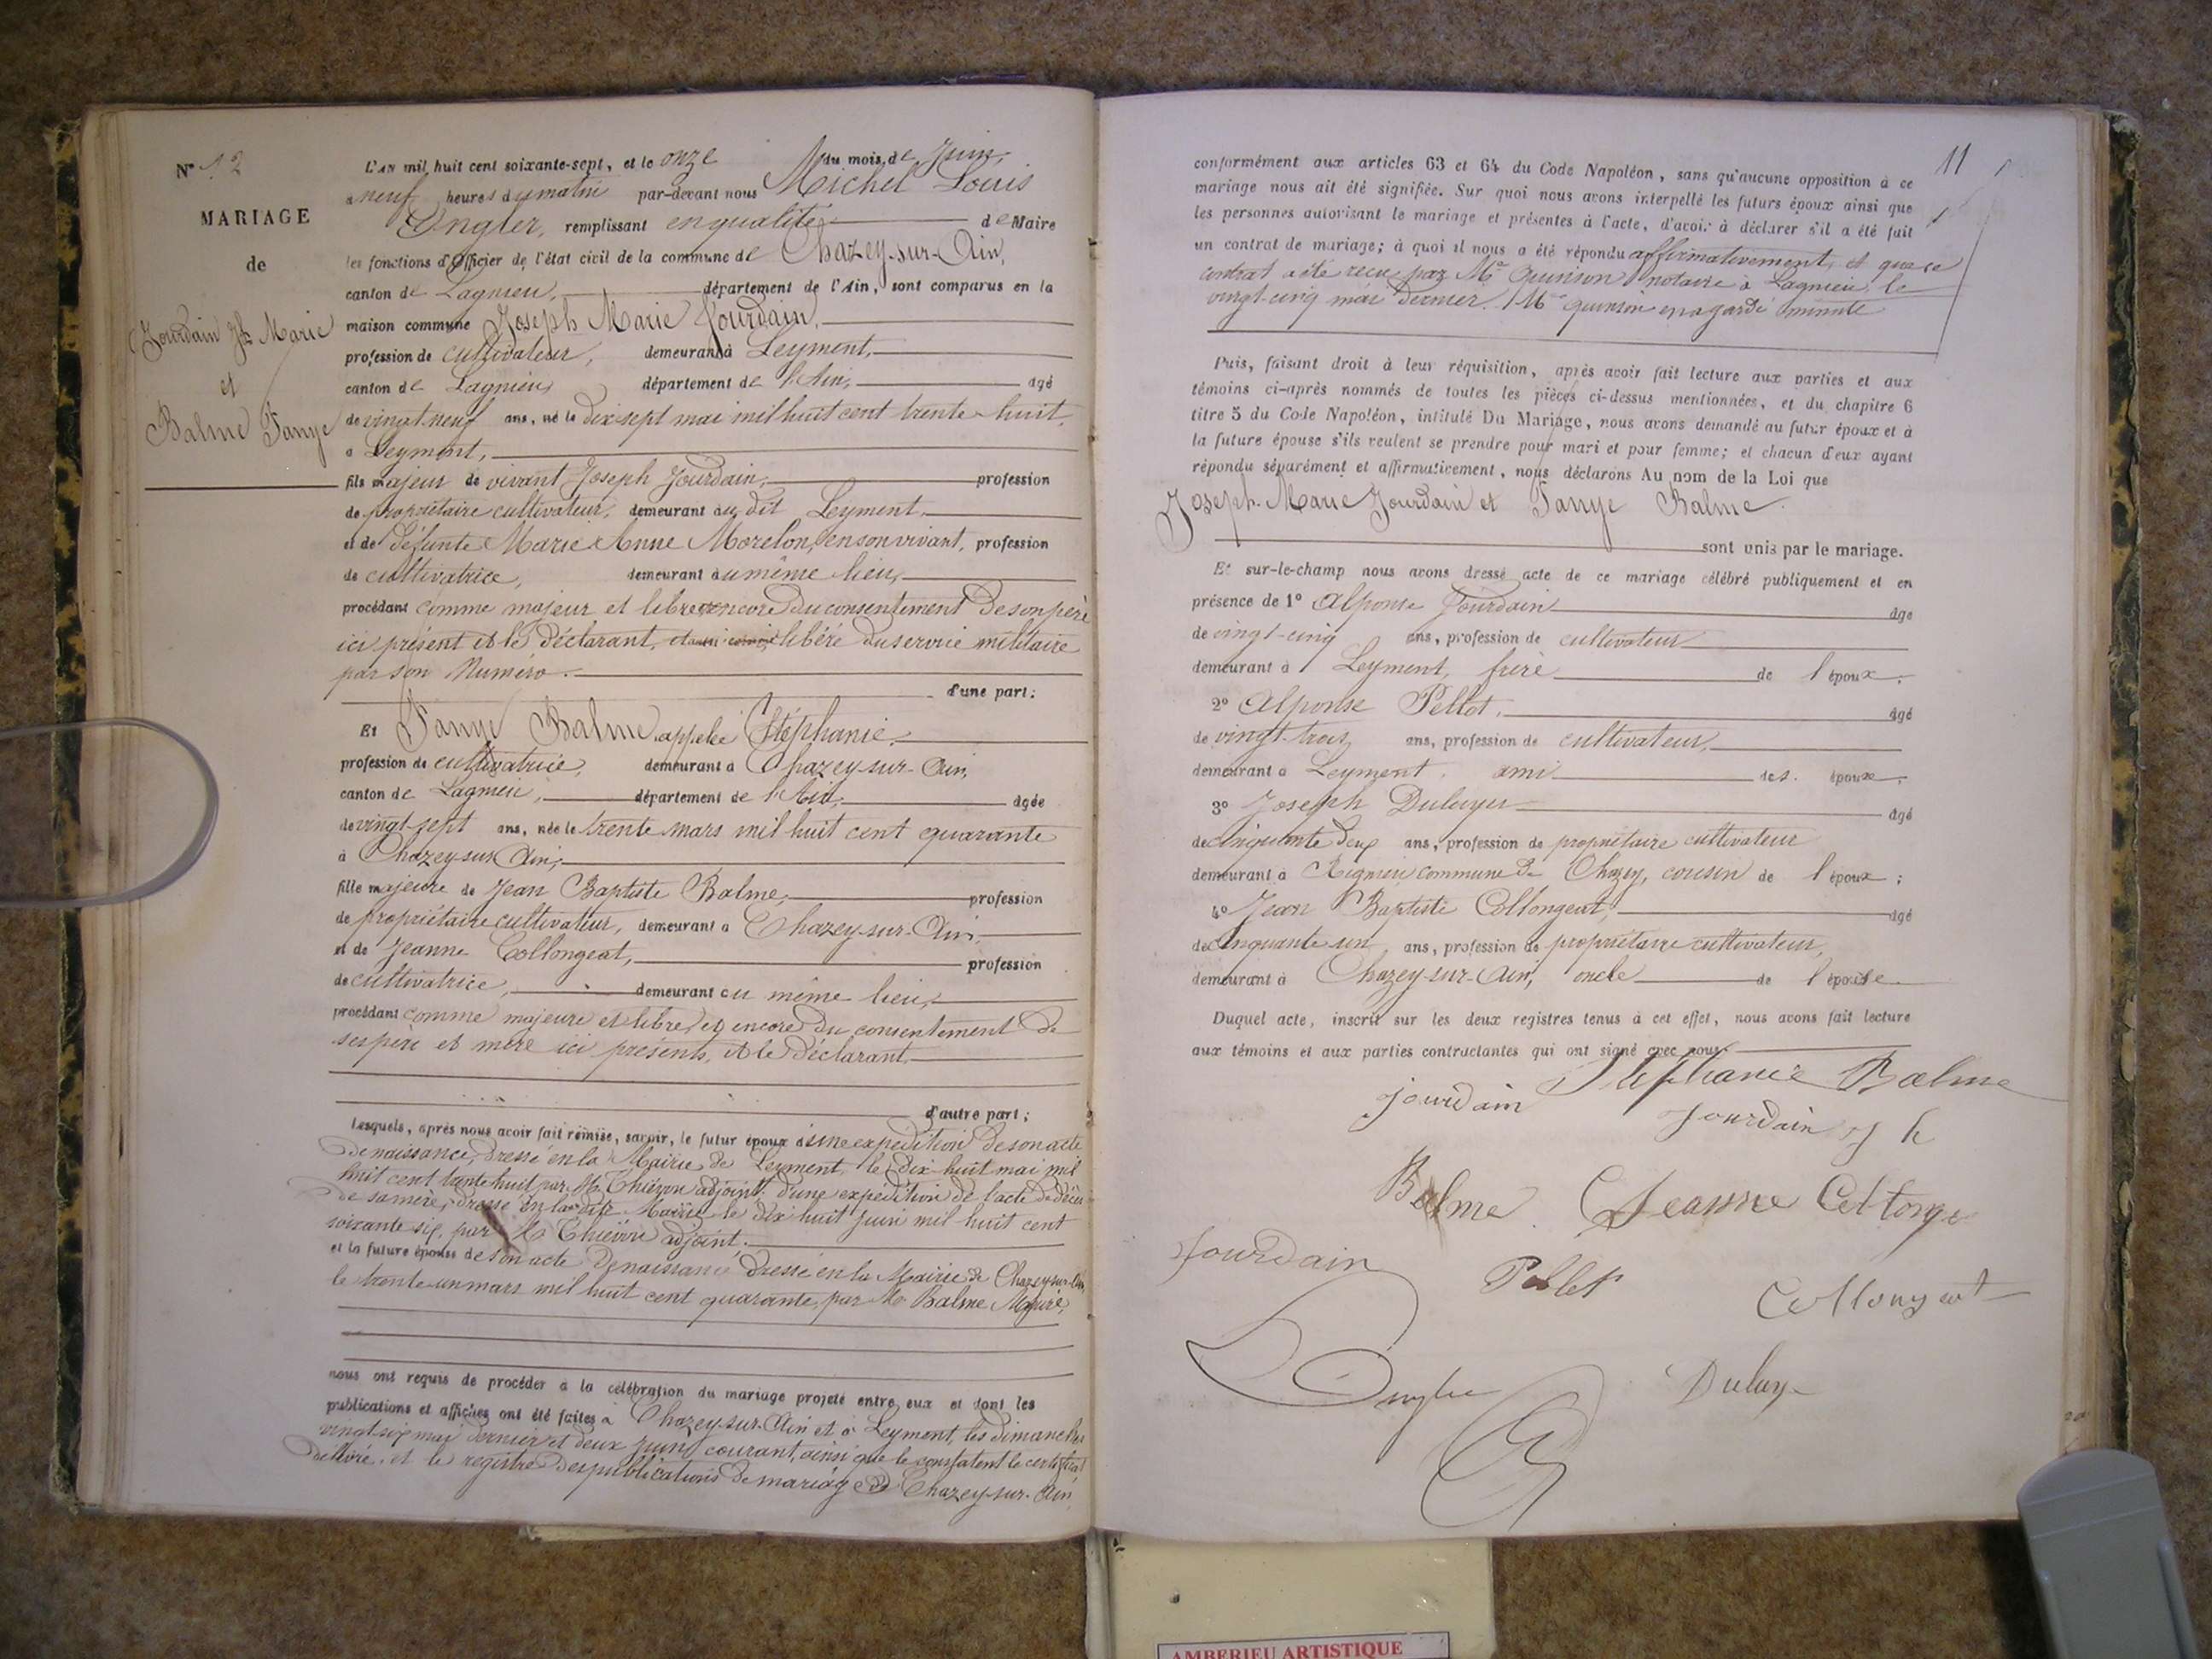 N° 12
MARIAGE
de
Jourdain Jh Marie
et
Balme Fanye
L'AN mil huit cent soixante-sept, et le onze du mois de Juin,
à neuf heures du matin par-devant nous Michel Louis
Ongler, remplissant en qualité de Maire
les fonctions d'Officier de l'état civil de la commune de Chazey-sur-Ain,
canton de Lagnieu, département de l'Ain, sont comparus en la
maison commune Joseph Marie Jourdain,
profession de cultivateur, demeurant à Leyment,
canton de Lagnieu, département de l'Ain, âgé
de vingt-neuf ans, né le dix sept mai mil huit cent trente-huit,
à Leyment,
fils majeur de vivant Joseph Jourdain, profession
de propriétaire cultivateur, demeurant au dit Leyment,
et de défunte Marie Anne Morelon, en son vivant, profession
de cultivatrice, demeurant au même lieu,
procédant comme majeur et libre encore du consentement de son père
ici présent et le déclarant, libéré du service militaire
par son Numéro.
d'une part;
Et Fanye Balme appelée Stéphanie,
profession de cultivatrice, demeurant à Chazey-sur-Ain,
canton de Lagnieu, département de l'Ain, âgée
de vingt-sept ans, née le trente mars mil huit cent quarante
à Chazey-sur-Ain,
fille majeure de Jean Baptiste Balme, profession
de propriétaire cultivateur, demeurant à Chazey-sur-Ain,
et de Jeanne Collongeat, profession
de cultivatrice, demeurant au même lieu,
procédant comme majeure et libre, et encore du consentement de
ses père et mère ici présents, et le déclarant,
d'autre part;
Lesquels, après nous avoir fait remise, savoir, le futur époux d'une expédition de son acte
de naissance, dressé en la Mairie de Leyment, le dix-huit mai mil
huit cent trente huit par M. Thiévon adjoint, d'une expédition de l'acte de décès
de sa mère, dressé en la dite Mairie le dix huit juin mil huit cent
soixante six, par M. Thiévon adjoint;
et la future épouse de son acte de naissance dressé en la Mairie de Chazey-sur-Ain,
le trente-un mars mil huit cent quarante, par M. Balme Maire,
nous ont requis de procéder à la célébration du mariage projeté entre eux et dont les
publications et affiches ont été faites à Chazey-sur-Ain et à Leyment, les dimanches
vingt six mai dernier et deux juin courant, ainsi que le constatent le certificat
délivré, et le registre des publications de mariage de Chazey-sur-Ain
11
conformément aux articles 63 et 64 du Code Napoléon, sans qu'aucune opposition à ce
mariage nous ait été signifiée. Sur quoi nous avons interpellé les futurs époux ainsi que
les personnes autorisant le mariage et présentes à l'acte, d'avoir à déclarer s'il a été fait
un contrat de mariage; à quoi il nous a été répondu affirmativement, et que ce
contrat a été reçu par Me Quinson notaire à Lagnieu, le
vingt-cinq mai dernier. Me quinson en a gardé minute
Puis, faisant droit à leur réquisition, après avoir fait lecture aux parties et aux
témoins ci-après nommés de toutes les pièces ci-dessus mentionnées, et du chapitre 6
titre 5 du Code Napoléon, intitulé Du Mariage, nous avons demandé au futur époux et à
la future épouse s'ils veulent se prendre pour mari et pour femme; et chacun d'eux ayant
répondu séparément et affirmativement, nous déclarons Au nom de la Loi que
Joseph-Marie Jourdain et Fanye Balme
sont unis par le mariage.
Et sur-le-champ nous avons dressé acte de ce mariage célébré publiquement et en
présence de 1° Alponse Jourdain âgé
de vingt-cinq ans, profession de cultivateur
demeurant à Leyment, frère de l'époux;
2° Alponse Pellot, âgé
de vingt-trois ans, profession de cultivateur,
demeurant à Leyment, ami des époux;
3° Joseph Duluye âgé
de cinquante deux ans, profession de propriétaire cultivateur
demeurant à Rignieu commune de Chazey, cousin de l'époux;
4° Jean Baptiste Collongeat, âgé
de cinquante un ans, profession de propriétaire cultivateur,
demeurant à Chazey-sur-Ain, oncle de l'épouse
Duquel acte, inscrit sur les deux registres tenus à cet effet, nous avons fait lecture
aux témoins et aux parties contractantes qui ont signé avec nous.
Stéphanie Balme
jourdain
Jourdain J h
Balme
Jeanne Collonge
Jourdain
Pellet
Collongeat
Ongler
Duluye
AMBERIEU ARTISTIQUE